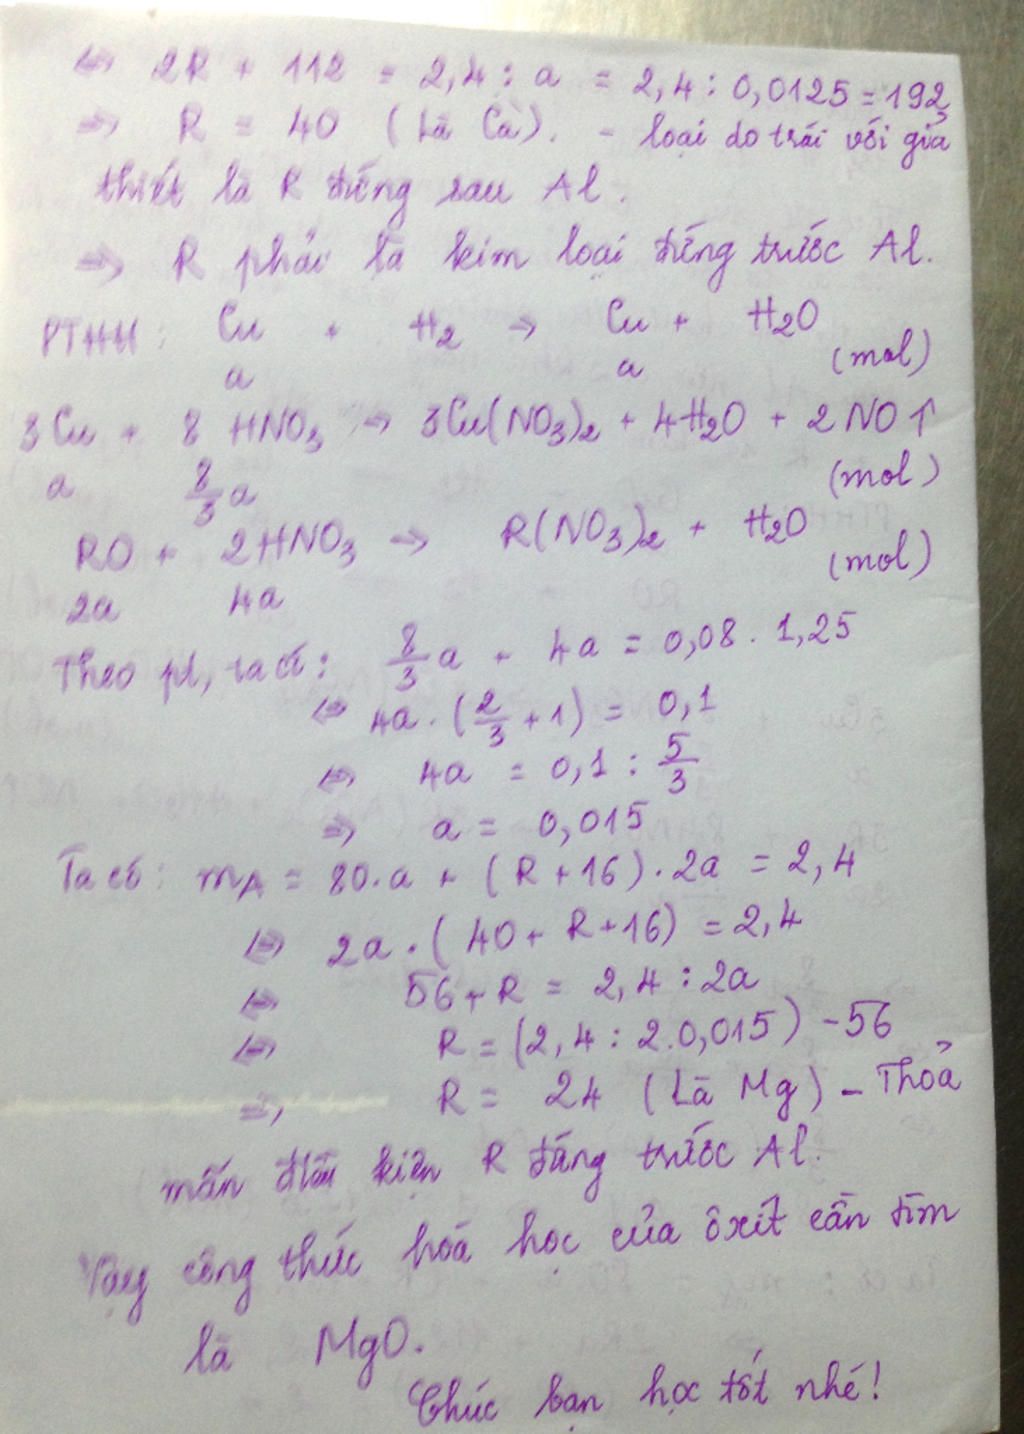 <=> 2R + 112 = 2,4 : a = 2,4 : 0,0125 = 192
=> R = 40 (Là Ca). - loại do trái với giả
thiết là R đứng sau Al.
=> R phải là kim loại đứng trước Al.
PTHH: Cu + H2 → Cu + H2O
a a (mol)
3Cu + 8HNO3 → 3Cu(NO3)2 + 4H2O + 2NO↑
a 8/3a (mol)
RO + 2HNO3 → R(NO3)2 + H2O
2a 4a (mol)
Theo pt, ta có: 8/3a + 4a = 0,08 . 1,25
<=> 4a . (2/3 + 1) = 0,1
<=> 4a = 0,1 : 5/3
=> a = 0,015
Ta có: mA = 80.a + (R + 16) . 2a = 2,4
<=> 2a . (40 + R + 16) = 2,4
<=> 56 + R = 2,4 : 2a
<=> R = (2,4 : 2.0,015) - 56
=> R = 24 (Là Mg) - Thoả
mãn điều kiện R đứng trước Al.
Vậy công thức hoá học của ôxít cần tìm
là MgO.
Chúc bạn học tốt nhé!